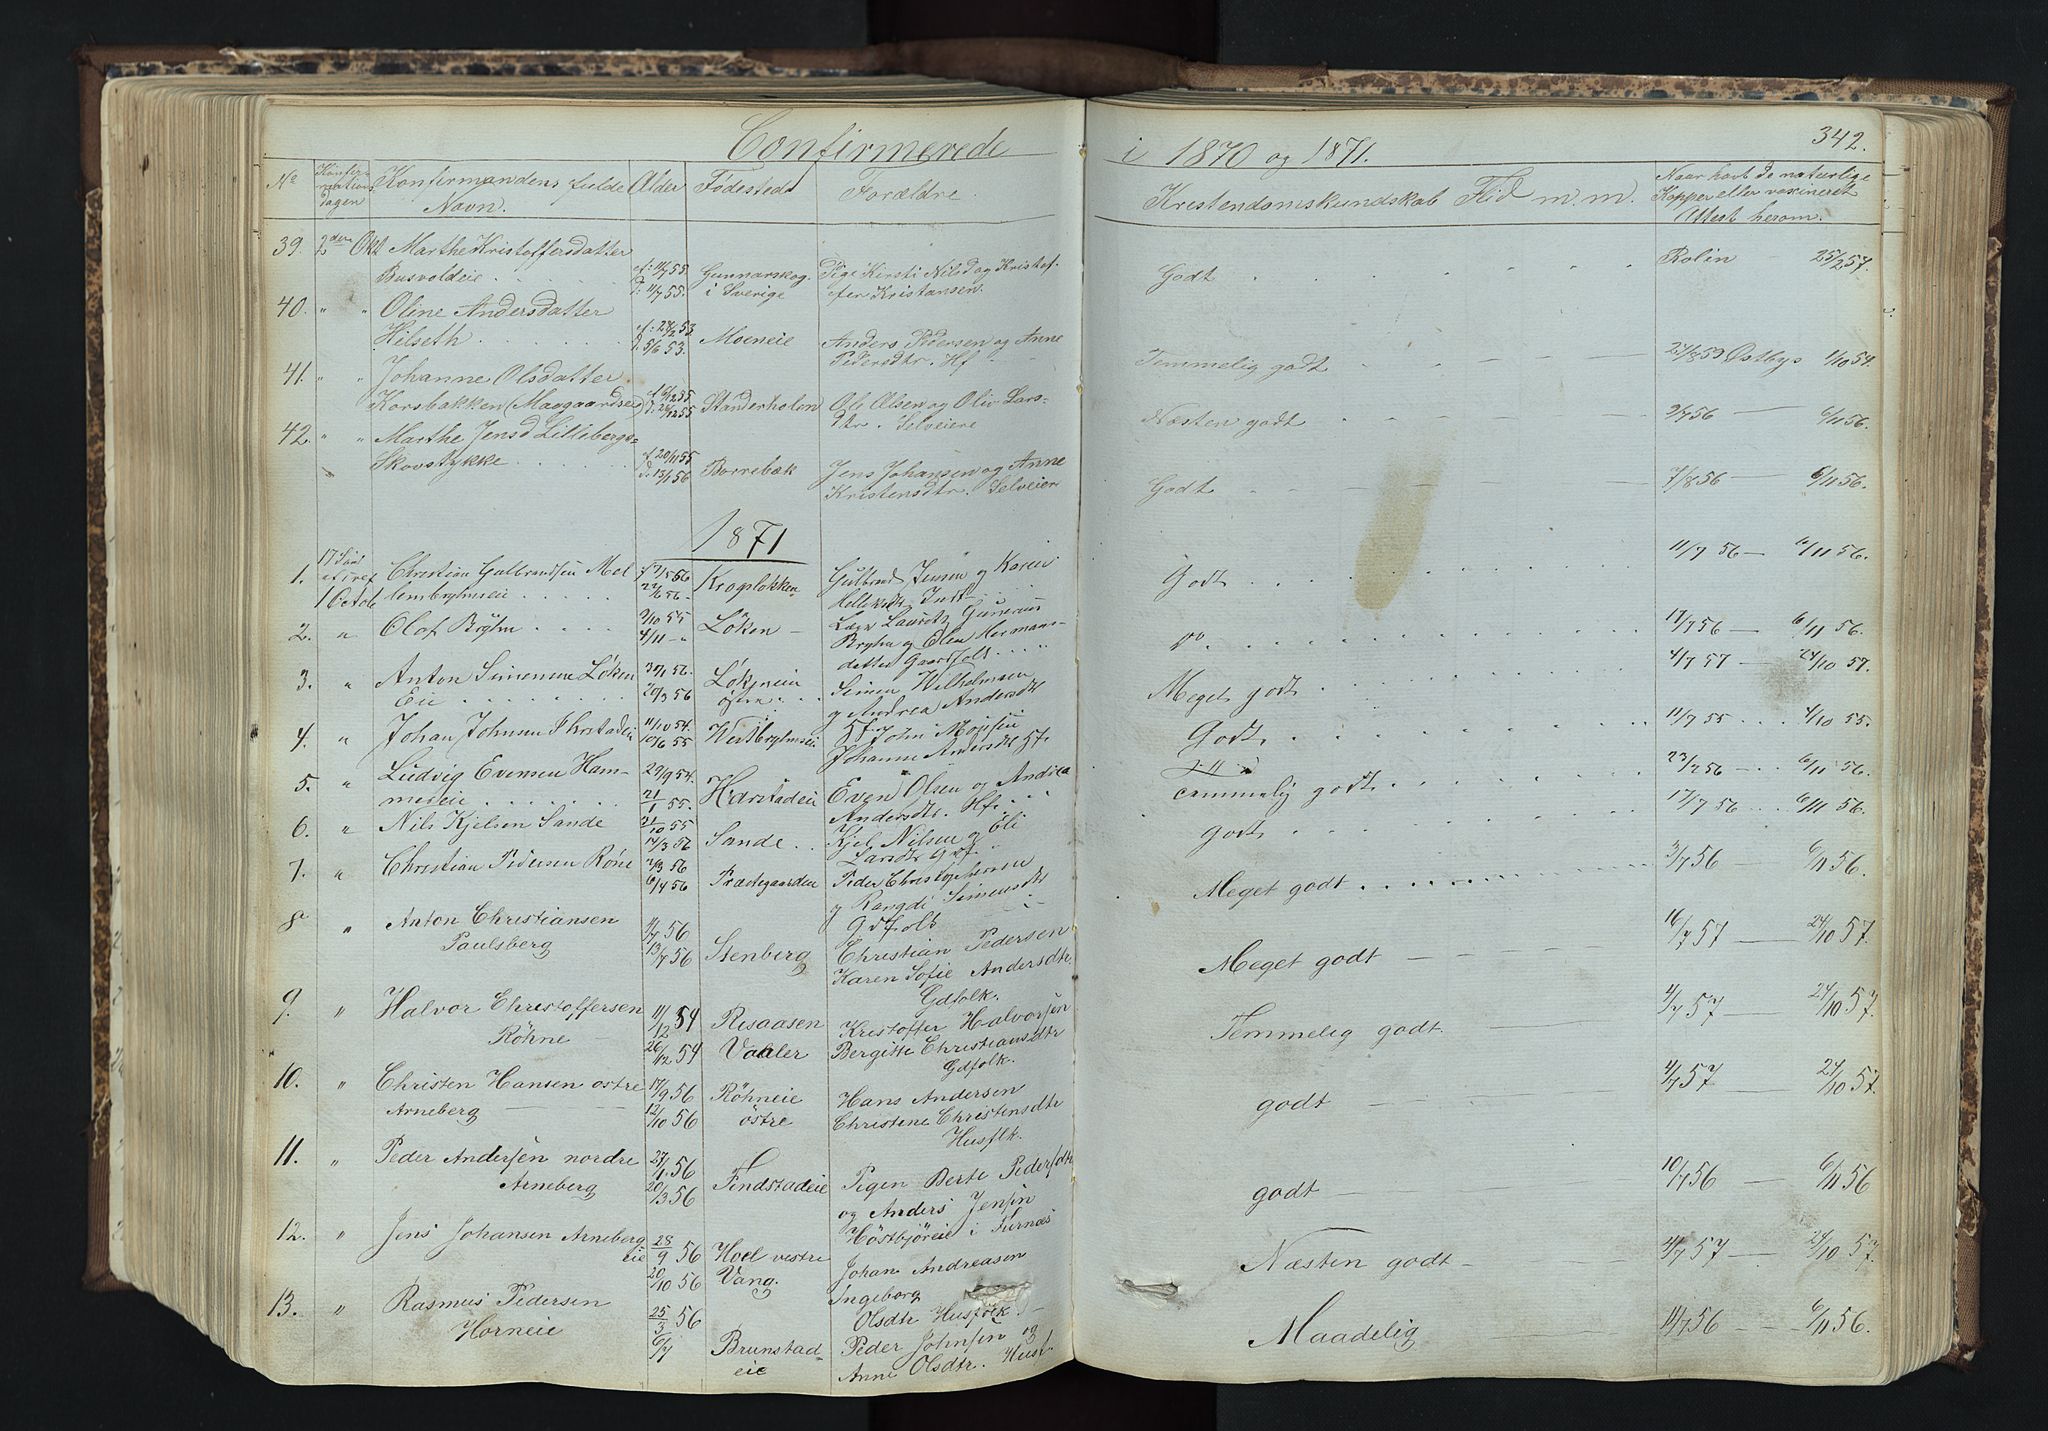 Confirmerede
i 1870 og 1871.
342.
No
Konfirmations dagen
Konfirmandens fulde Navn.
Alder
Fødested
Forældre
Kristendomskundskab Flid m.m.
Naar havt de naturlige
Kopper eller vaxineret
Attest herom.
39. 2den Okt Marthe Kristoffersdatter
Busvoldeie f: 11/7 55. Gunnarskog Pige Kirsti Nilsd og Kristof-
d: 11/7 55. i Sverige fer Kristansen. Godt Rolin 25/2 57.
40. " " Oline Andersdatter
Hilseth f: 28/2 53 Moeneie Anders Pedersen og Anne
d. 5/6 53. Pedersdtr. Hf Temmelig godt Østbys 1/10 54.
41. " " Johanne Olsdatter
Korsbakken Standerholen Ole Olsen og Oliv Lars-
dtr. Selveiere Næsten godt 9/7 56 6/11 56.
42. " " Marthe Jensd Lillebergs-
Skovstykke f 20/11 55 Borrebæk Jens Johansen og Anne
d. 13/1 56 Kristensdtr. Selveier Godt 7/8 56 6/11 56.
1871
17 Sønd
ef. tref
1 Octob
1. Christian Gulbrandsen Mel
lembyhnseie Krogsløkken Gulbrand Jensen og Karen
Godt 11/7 56 6/11 56.
2. " Olaf Bryhn 9/10 55 Løken
4/11 - " Lauritz
Bryhn og Olea Hermans-
datter Gaardfolk do. 17/7 56 6/11 56.
3. " Anton Simensen Løken
Eie 30/1 56. Løkeneie
20/3 56 østre Simen Wilhelmsen
og Andrea Andersdt
Hf Meget godt 4/7 57 24/10 57.
4. " Johan Johnsen 11/10 54. Westbyhnseie
10/6 55 John Mogsen
Johanne Andersdt Hf. Godt 11/7 55 4/10 55.
5. " Ludvig Evensen Ham-
mereie 29/9 54. Harstadeie Even Olsen og Andrea
21/1 55. Andersdtr. Hf. Temmelig godt. 23/2 56 6/11 56.
6. " Nils Kjelsen Sande 31/10 55 Sande Kjel Nilsen og Eli
14/3 56 Larsdtr Gdf. godt 17/7 56 6/11 56.
7. " Christian Pedersen Røne 2/3 56 Prestegaarden Peder Christophersen
6/4 56 og Rangdi Simensdt
Gdfolk Meget godt 3/7 56 6/11 56.
8 " Anton Christiansen
Paulsberg 56 Stenberg Christian Pedersen
13/7 56 Karen Sofie Andersdtr
Gdfolk. Meget godt 16/7 57 24/10 57.
9. " Halvor Christoffersen 11/12 54 Risaasen Kristoffer Halvorsen
Röhne 26/12 54 Vaaler Bergitte Christiansdtr
Gdfolk. Temmelig godt 4/7 57 24/10 57.
10. " Christen Hansen østre 17/9 56 Röhneie Hans Andersen
Arneberg 12/10 56 östre Christene Christensdtr
Husflk. godt 4/7 57 24/10 57.
11. " Peder Andersen nordre 27/1 56
Arneberg 20/3 56 Findstadeie Pigen Berte Pedersdtr
og Anders Jensen
Höstbjöreie i Furnæs godt 10/7 56 6/11 56
12. " Jens Johansen Arneberg
eie 28/9 56 Hoel vestre Johan Andreasen
20/10 56 Vang. Ingeborg
Olsdtr Husfolk Næsten godt 4/7 57 24/10 57.
13. " Rasmus Pedersen 25/3 56
Horneie 6/7 Brunstad-
eie Peder Johnsen og
Anne Olsdtr. Husf. Maadelig 14/7 56 6/11 56.